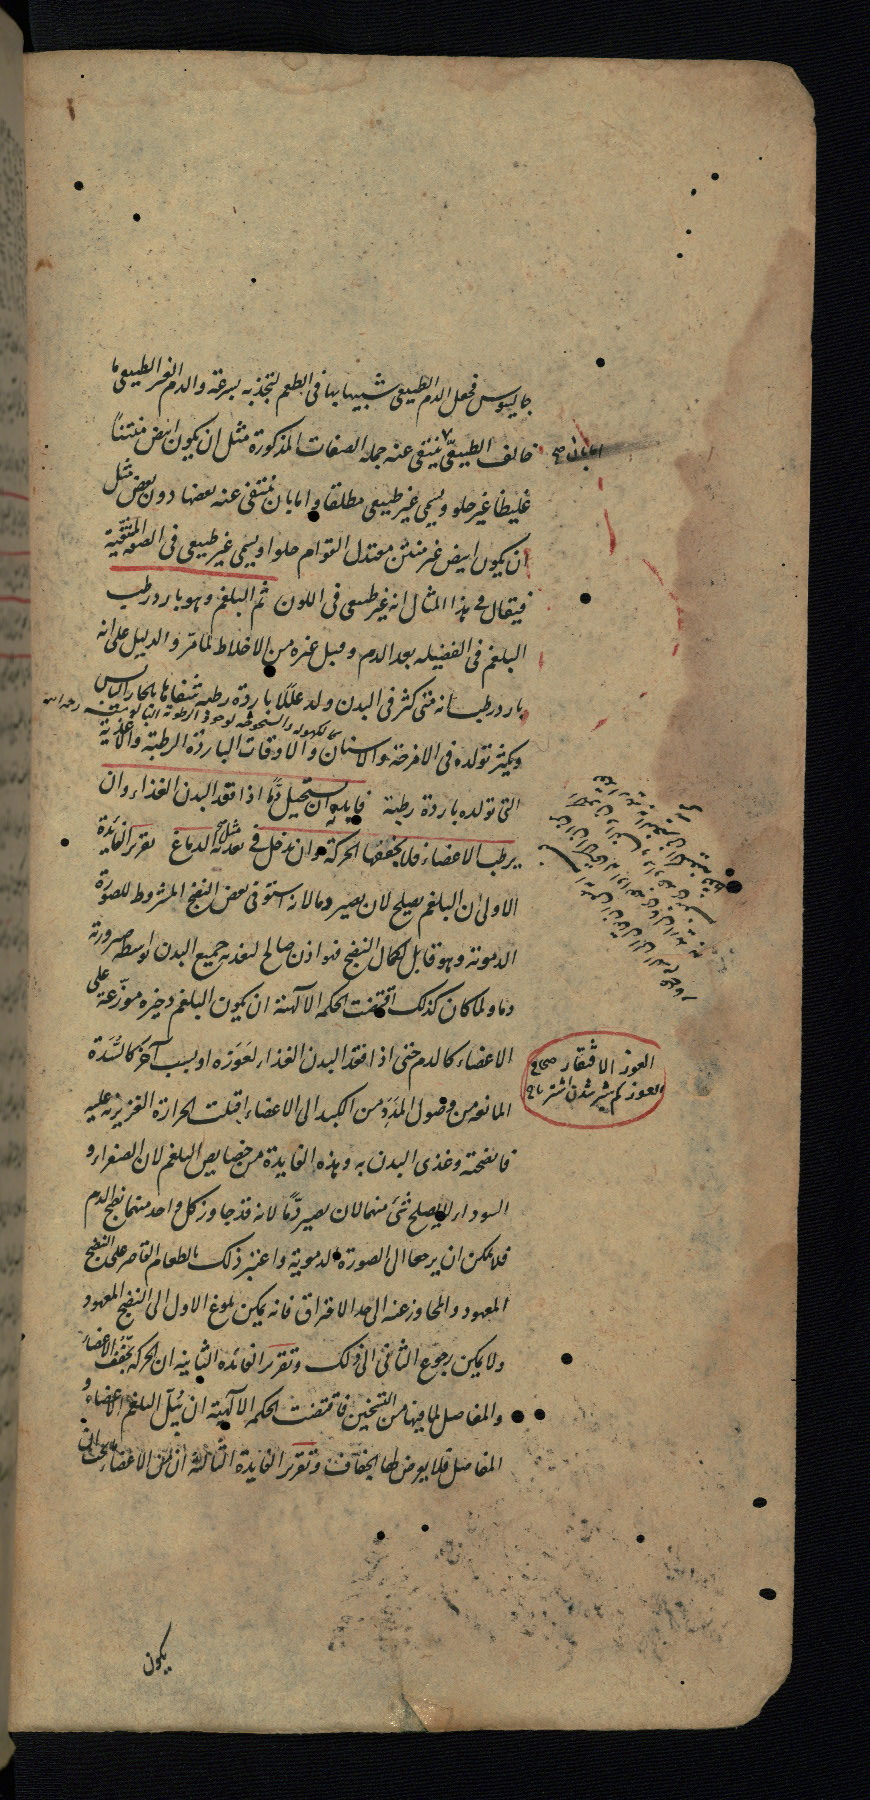 جالينوس فجعل الدم الطبيعى شبيها بها فى الطعم لتجذبه بسرعة والدم الغير الطبيعى ما
خالف الطبيعىّ ينتفى عنه جملة الصفات المذكورة مثل ان يكون ابيض منتنًا
امابان صح
غليظا غير حلو ويسمى غير طبيعى مطلقا و امابان ينتفى عنه بعضها دون بعض مثل
ان يكون ابيض غير منتن معتدل القوام حلوا ويسمى غير طبيعى فى الصفة المنتفية
فيقال فى هذا المثال انه غير طبيعى فى اللون ثم البلغم وهو بارد رطب
البلغم فى الفضيله بعد الدم وقبل غيره من الاخلاط لما مرّ والدليل على انه
بارد رطب انه متى كثر فى البدن ولد عللًا باردة رطبة شفاها بالحار اليابس
ويكثر تولده فى الامزجة والاسنان والاوقات الباردة الرطبة والاغذية
التى تولده باردة رطبة فايدته ان يستحيل دمًا اذا فقد البدن الغذاء وان
يرطب الاعضاء فلا يجففها الحركة وان يدخل فى تغذية مثل الدماغ تقرير الفايدة
الاولى ان البلغم يصلح لان يصير دما لانه استوفى بعض النضج المشروط للصورة
الدموية وهو قابل لكمال النضج فهو اذن صالح لتغذية جميع البدن بواسطة صيرورته
دما ولما كان كذلك اقتضت الحكمة الالهية ان يكون البلغم ذخيرة موزّعة على
الاعضاء كالدم حتى اذا فقد البدن الغذاء لعَوَزه او بسبب آخر كالسُّدَة
العوز الافتقار صحاح
العوز كم بيش شدن
المانعة من وصول المَدَد من الكبد الى الاعضاء اقبلت الحرارة الغريزية عليه
فانضجته وغذى البدن به وهذه الفايدة من خصايص البلغم لان الصفراء و
السوداء لا يصلح شئ منهما لان يصير دمًا لانه قد جاوز كل واحد منهما نضج الدم
فلا يمكن ان يرجعا الى الصورة الدموية واعتبر ذلك بالطعام القاصر على النضج
المعهود والمجاوز عنه الى حد الاحتراق فانه يمكن بلوغ الاول الى النضج المعهود
ولا يمكن رجوع الثانى الى ذلك وتقرير الفائدة الثانية ان الحركة تجفّف الاعضاء
والمفاصل لما فيها من التسخين فاقتضت الحكمة الالهية ان يُبلّ البلغم الاعضاء و
المفاصل فلا يعرض لها الجفاف وتقرير الفايدة الثالثة ان من الاعضاء
يكون